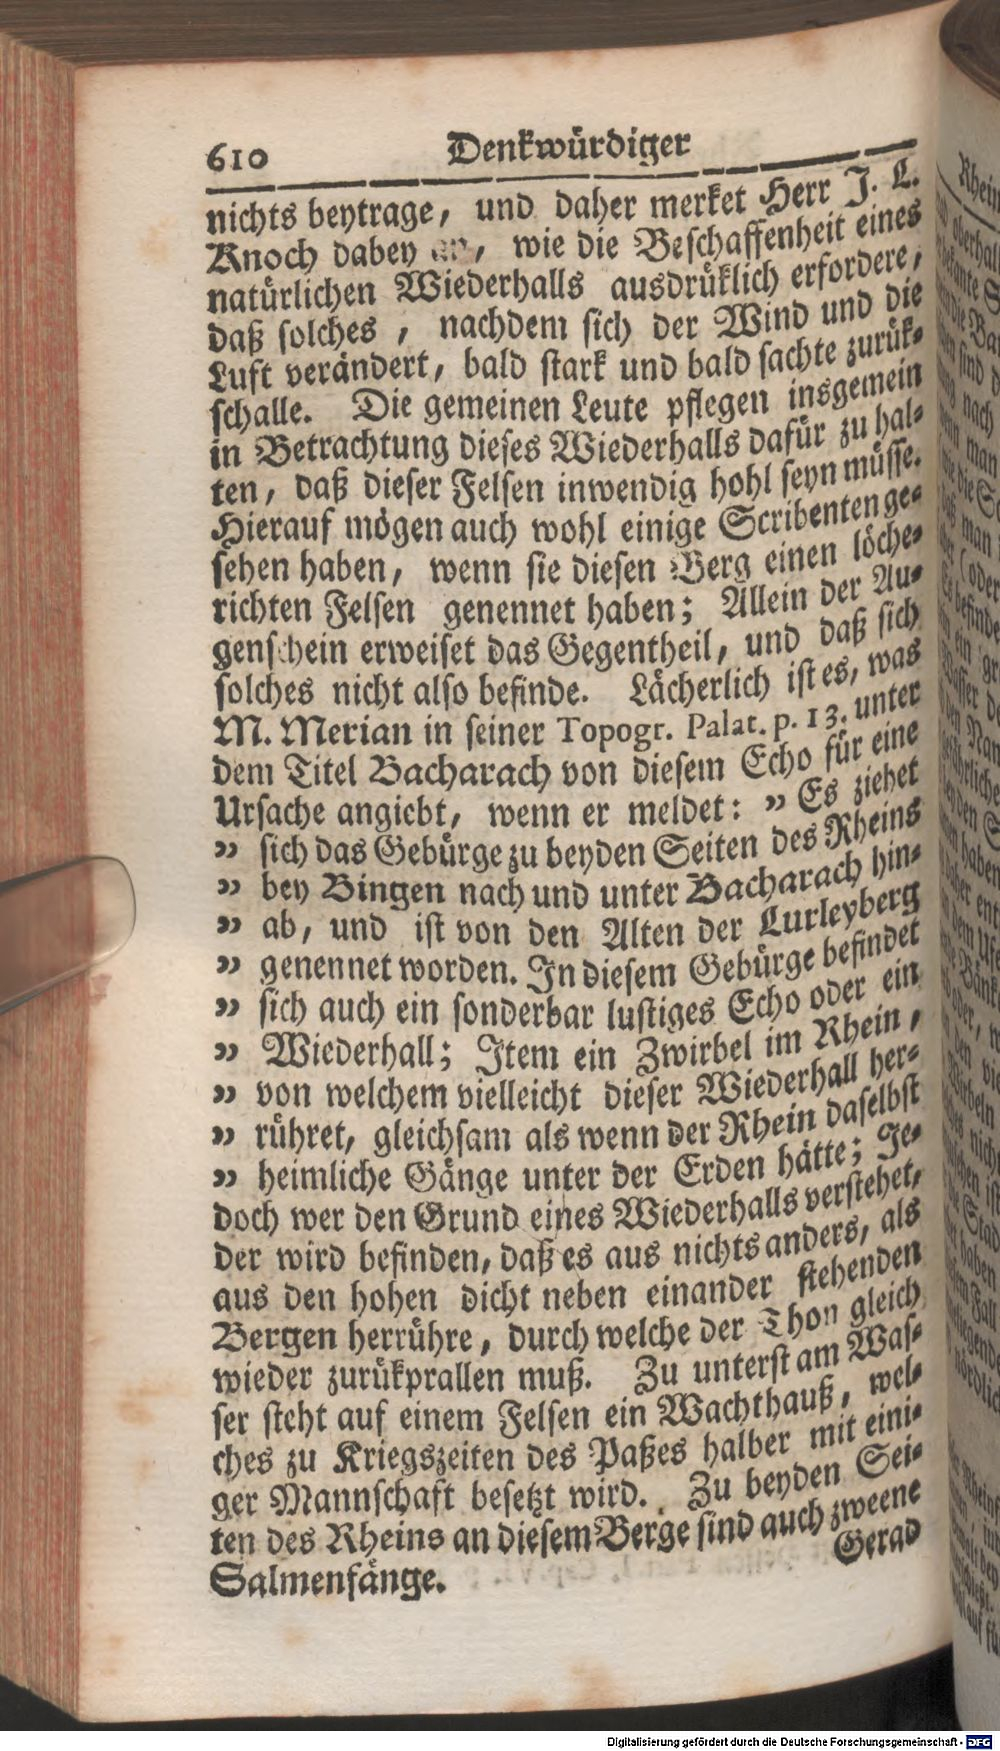 610 Denkwürdiger
nichts beytrage, und daher merket Herr J. L.
Knoch dabey an, wie die Beschaffenheit eines
natürlichen Wiederhalls ausdrüklich erfordere,
daß solches, nachdem sich der Wind und die
Luft verändert, bald stark und bald sachte zurük-
schalle. Die gemeinen Leute pflegen insgemein
in Betrachtung dieses Wiederhalls dafür zu hal-
ten, daß dieser Felsen inwendig hohl seyn müsse.
Hierauf mögen auch wohl einige Scribenten ge-
sehen haben, wenn sie diesen Berg einen löche-
richten Felsen genennet haben; Allein der Au-
genschein erweiset das Gegentheil, und daß sich
solches nicht also befinde. Lächerlich ist es, was
M. Merian in seiner Topogr. Palat. p. 13. unter
dem Titel Bacharach von diesem Echo für eine
Ursache angiebt, wenn er meldet: „ Es ziehet
„ sich das Gebürge zu beyden Seiten des Rheins
„ bey Bingen nach und unter Bacharach hin-
„ ab, und ist von den Alten der Lurleyberg
„ genennet worden. In diesem Gebürge befindet
„ sich auch ein sonderbar lustiges Echo oder ein
„ Wiederhall; Item ein Zwirbel im Rhein,
„ von welchem vielleicht dieser Wiederhall her-
„ rühret, gleichsam als wenn der Rhein daselbst
„ heimliche Gänge unter der Erden hätte; Je-
doch wer den Grund eines Wiederhalls verstehet,
der wird befinden, daß es aus nichts anders, als
aus den hohen dicht neben einander stehenden
Bergen herrühre, durch welche der Thon gleich
wieder zurükprallen muß. Zu unterst am Was-
ser steht auf einem Felsen ein Wachthauß, wel-
ches zu Kriegszeiten des Paßes halber mit eini-
ger Mannschaft besetzt wird. Zu beyden Sei-
ten des Rheins an diesem Berge sind auch zweene
Salmenfänge.
Gerad
Digitalisierung gefördert durch die Deutsche Forschungsgemeinschaft - DFG